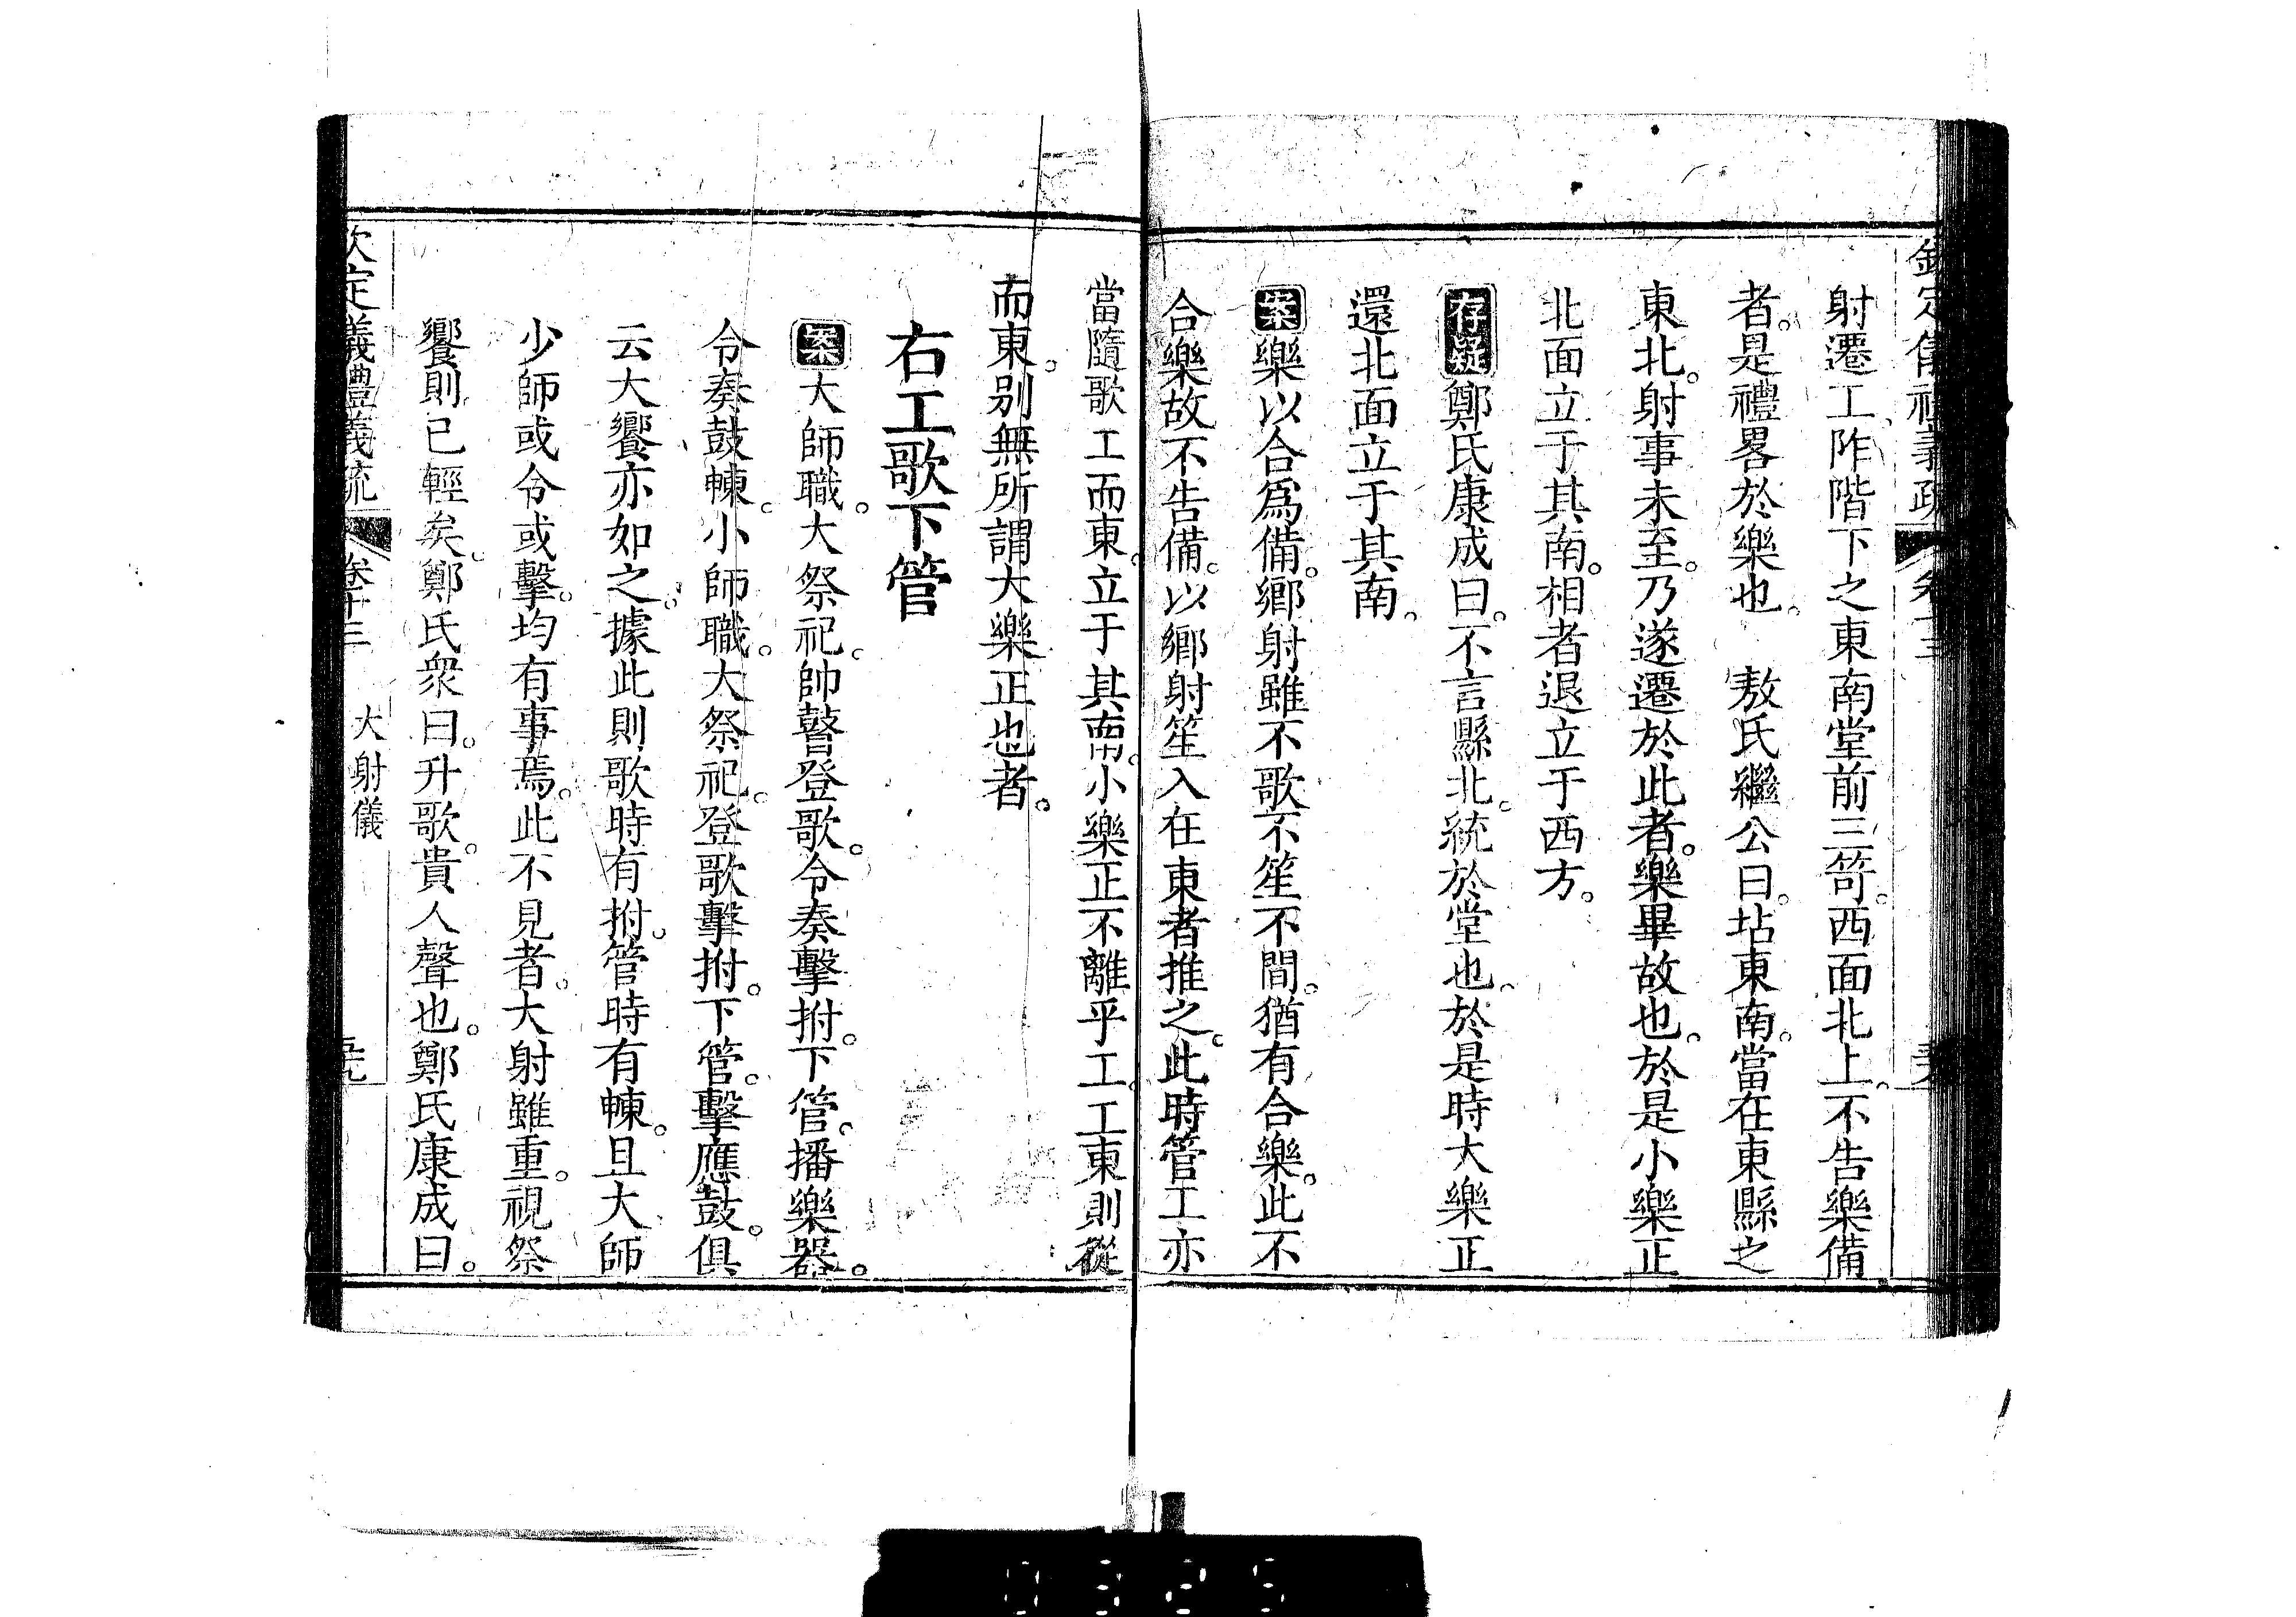 欽定儀禮義疏 卷十三
射遷工阼階下之東南堂前三笴。西面北上。不告樂備
者。是禮畧於樂也。 敖氏繼公曰。坫東南。當在東縣之
東北。射事未至。乃遂遷於此者。樂畢故也。於是小樂正
北面立于其南。相者退立于西方。
存疑鄭氏康成曰。不言縣北。統於堂也。於是時大樂正
還北面立于其南。
案樂以合爲備。鄉射雖不歌不笙不間。猶有合樂。此不
合樂故不告備。以鄉射笙入在東者推之。此時管工亦
當隨歌工而東。立于其南。小樂正不離乎工。工東則從
而東。别無所謂大樂正也者。
右工歌下管
案大師職。大祭祀。帥瞽登歌。令奏擊拊。下管。播樂器。
令奏鼓朄。小師職。大祭祀。登歌擊拊。下管。擊應鼓。俱
云大饗亦如之。據此則歌時有拊。管時有朄。且大師
少師或令或擊。均有事焉。此不見者。大射雖重。視祭
饗則已輕矣。鄭氏衆曰。升歌。貴人聲也。鄭氏康成曰。
欽定儀禮義疏 卷十三 大射儀
0325